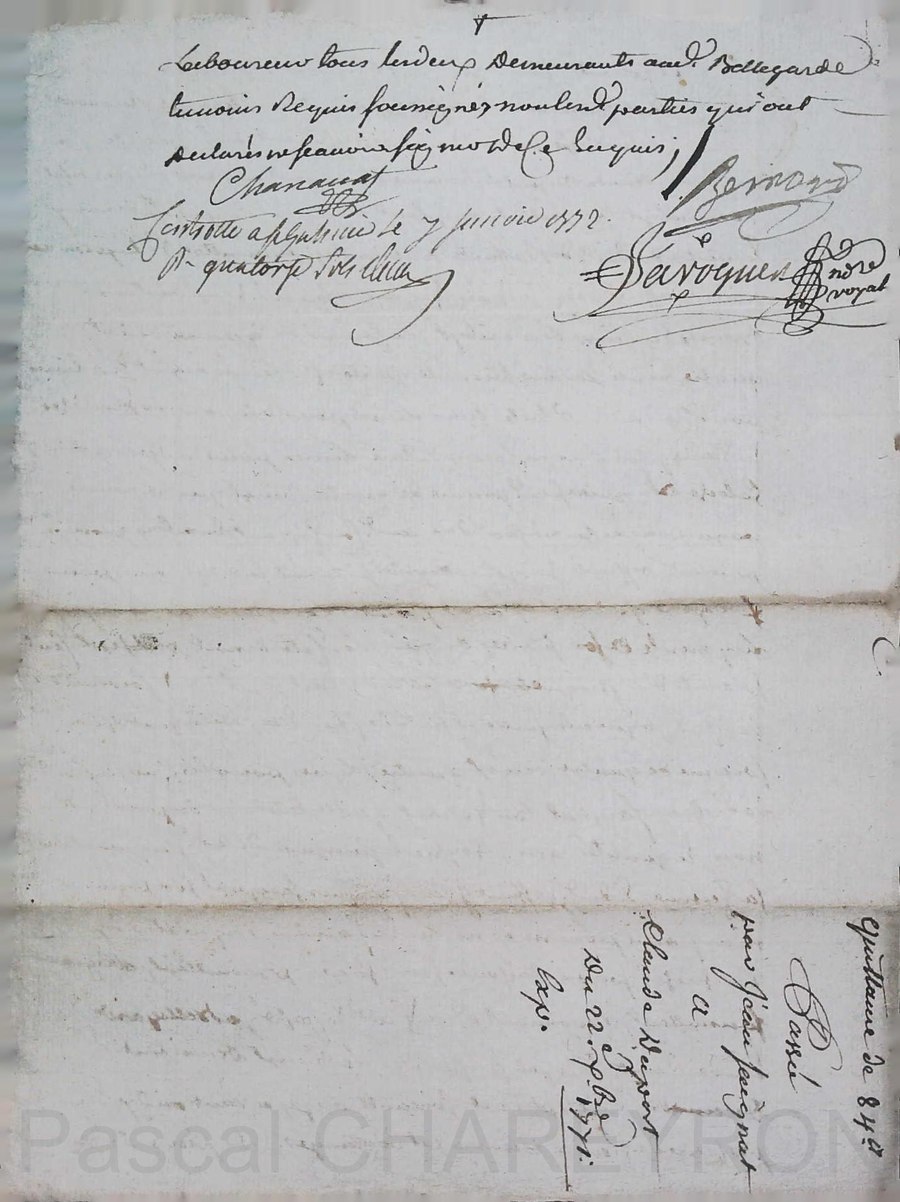 Laboureur tous lesdeux Demeurants aud. Bellegarde
temoins Requis soussignés non lesd. parties qui ont
Declarés ne scavoir signer de ce Enquis;
Bernard
a le 7 janvié 1772
Rt quatorze sols
Savoyen
nore
royal
quittance de 84ll
Passé
par jean
a
Claude Duport
Du 22 xbre
1771.
Exp.
Pascal CHAREYRON